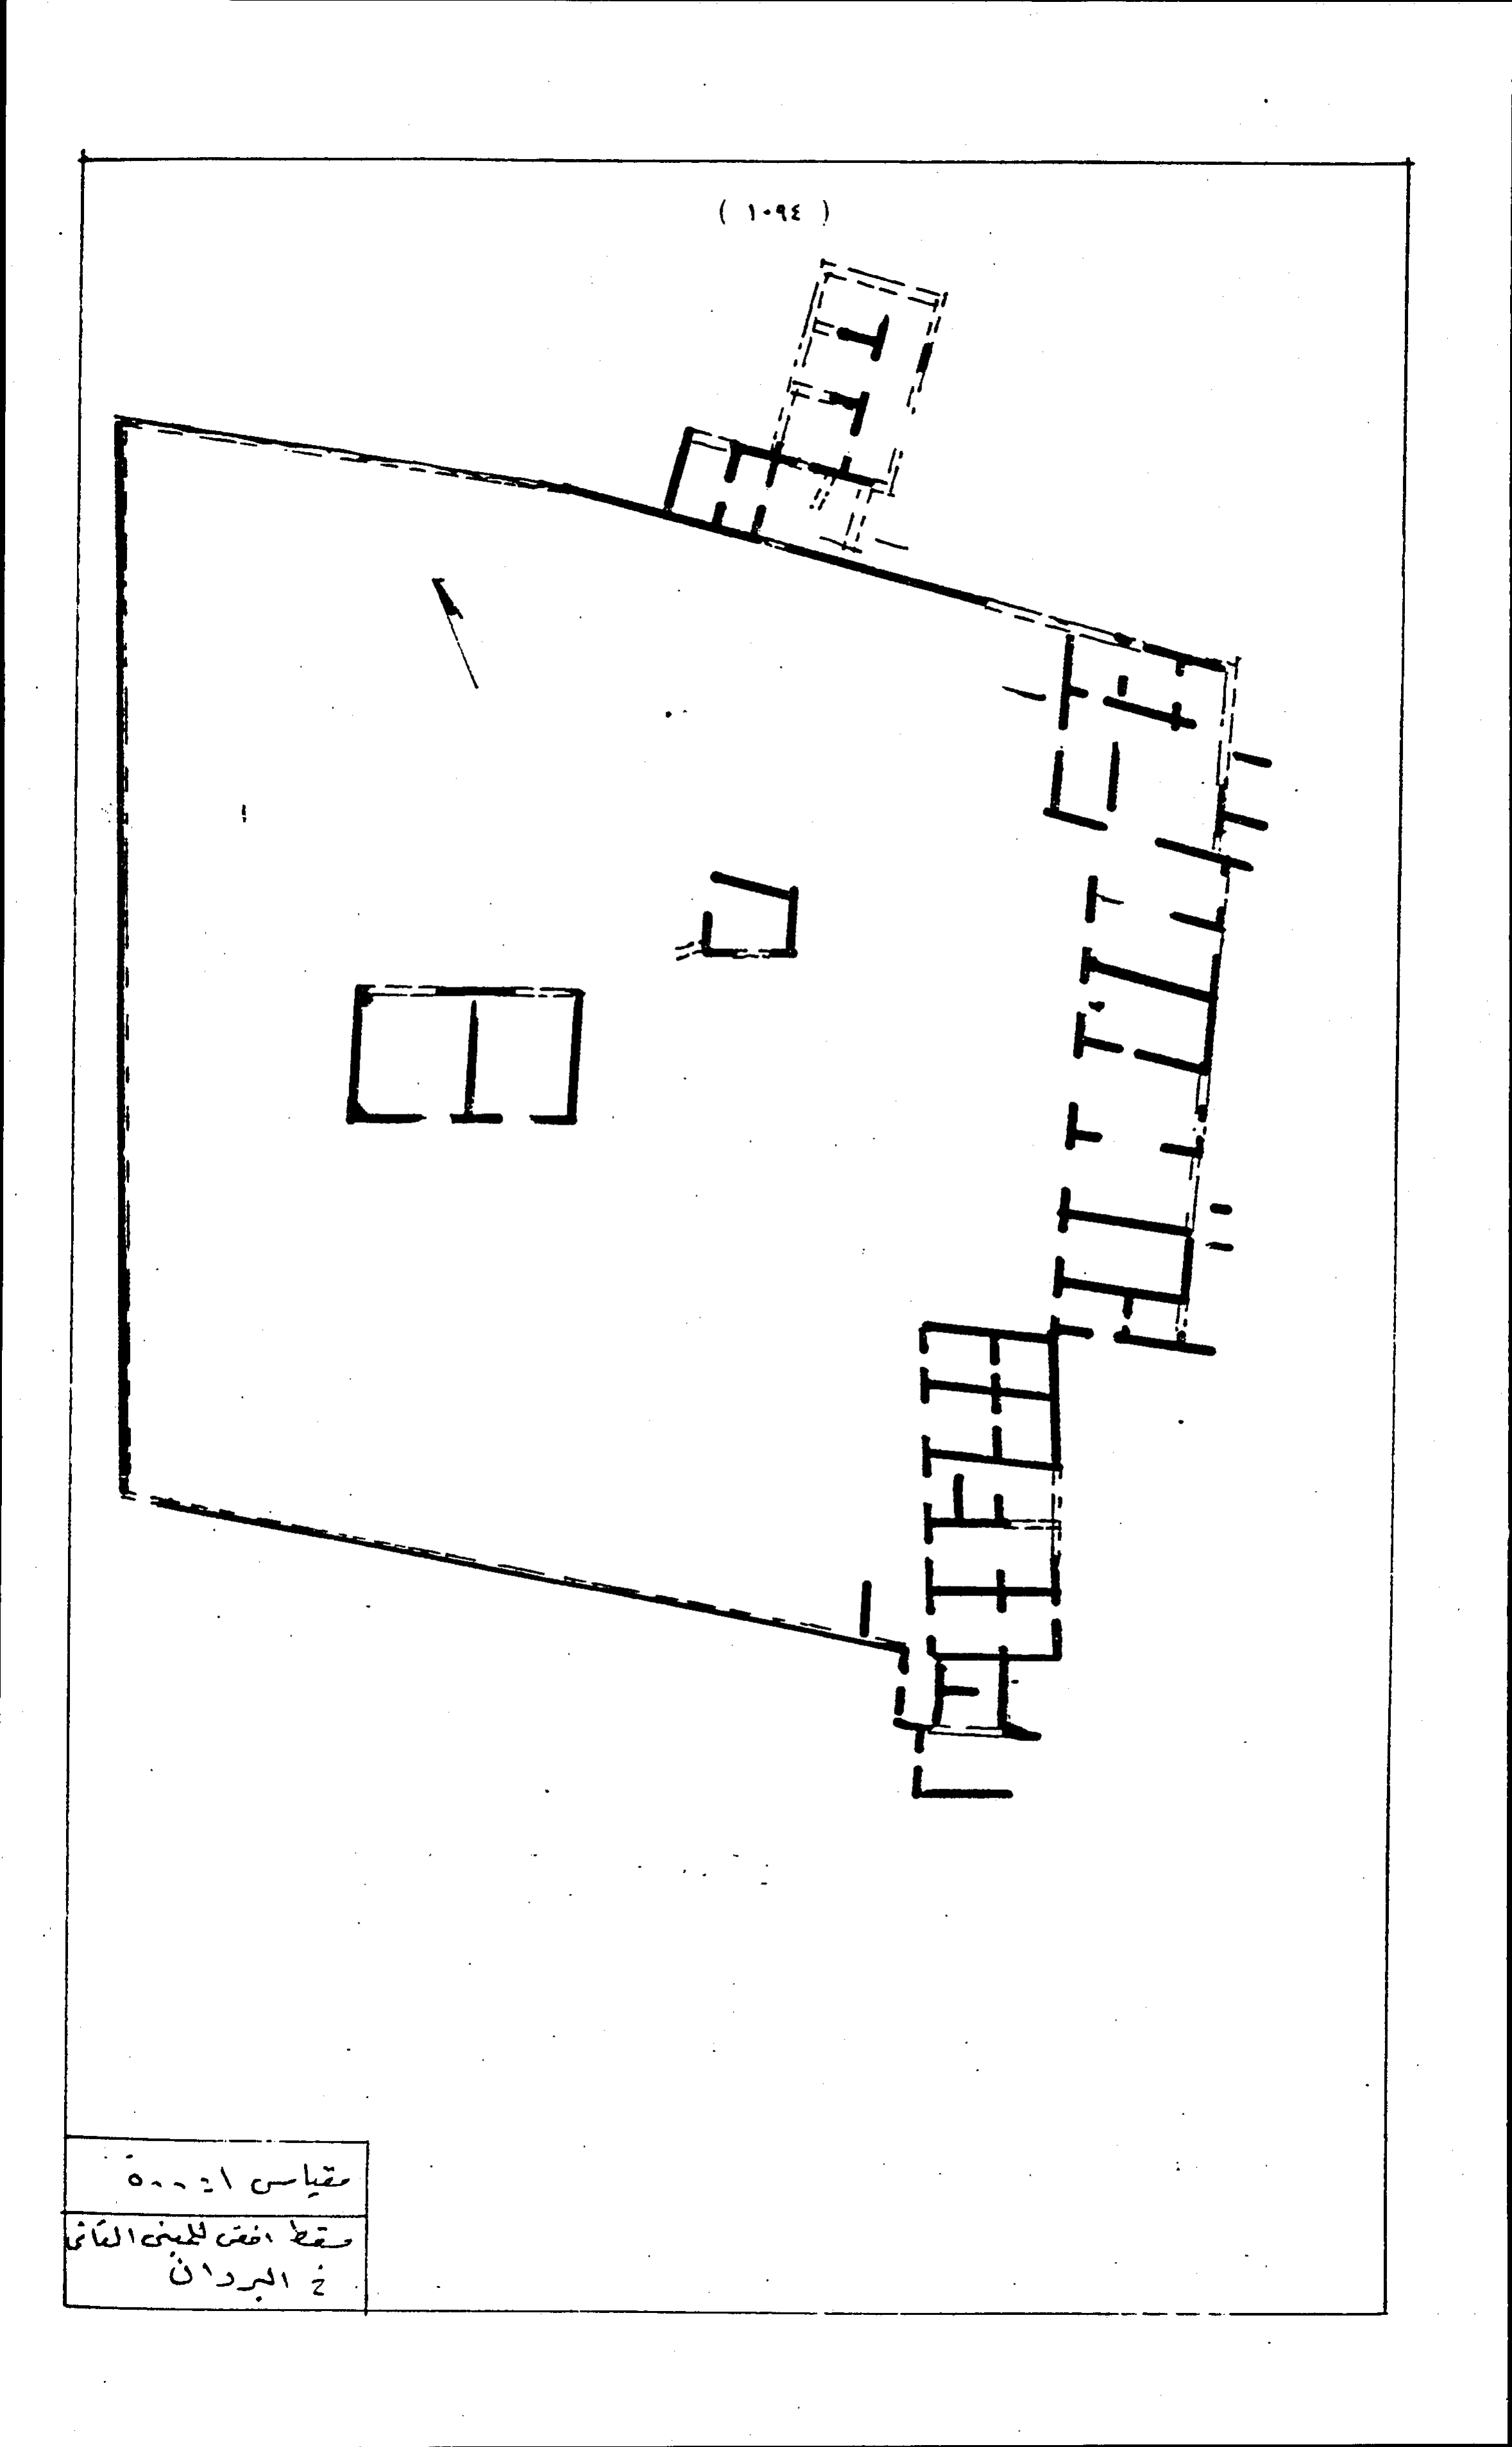 ( ١٠٩٤ )
مقياس ١ : ٥٠٠
مسقط افقي للمبنى الثاني
في البردان